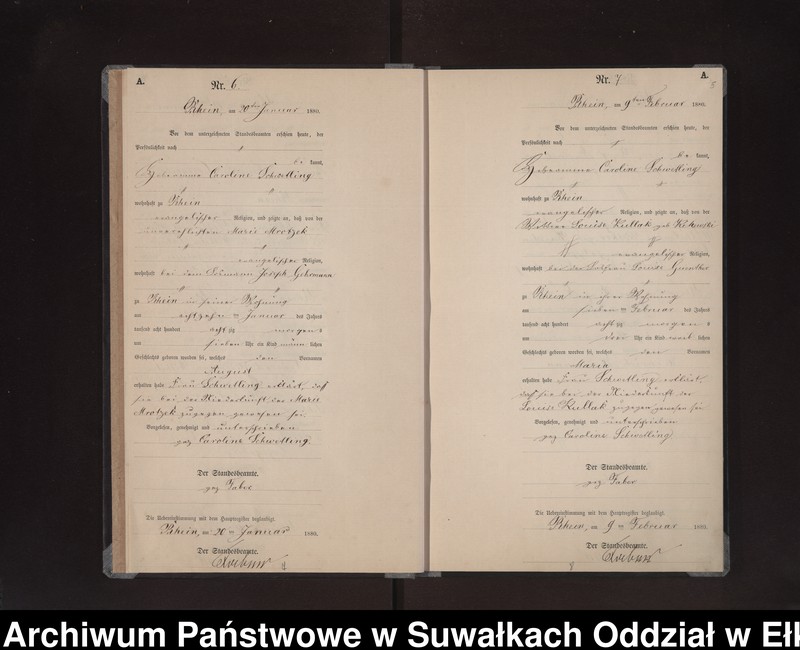 A.
Nr. 6.
Rhein, am 20ten Januar 1880.
Vor dem unterzeichneten Standesbeamten erschien heute, der
Persönlichkeit nach
be kannt,
Hebeamme Caroline Schwelling
wohnhaft zu Rhein
evangelischer Religion, und zeigte an, daß von der
unverehelichten Marie Mrotzek
evangelischer Religion,
wohnhaft bei dem Joseph
zu Rhein in seiner Wohnung
am achtzehn ten Januar des Jahres
tausend acht hundert achtzig morgens
um sieben Uhr ein Kind männ lichen
Geschlechts geboren worden sei, welches den Vornamen
August
erhalten habe Frau Schwelling erklärt, daß
sie bei der Niederkunft der Marie
Mrotzek zugegen gewesen sei.
Vorgelesen, genehmigt und unterschrieben
gez. Caroline Schwelling.
Der Standesbeamte.
gez. Faber
Die Uebereinstimmung mit dem Hauptregister beglaubigt.
Rhein, am 20 ten Januar 1880.
Der Standesbeamte.
A.
Nr. 7.
Rhein, am 9ten Februar 1880.
Vor dem unterzeichneten Standesbeamten erschien heute, der
Persönlichkeit nach
be kannt,
Hebeamme Caroline Schwelling
wohnhaft zu Rhein
evangelischer Religion, und zeigte an, daß von der
Louise Kullak geb.
evangelischer Religion,
wohnhaft bei der Louise Gunther
zu Rhein in ihrer Wohnung
am sieben ten Februar des Jahres
tausend acht hundert achtzig morgens
um drei Uhr ein Kind weib lichen
Geschlechts geboren worden sei, welches den Vornamen
Maria
erhalten habe Frau Schwelling erklärt,
daß sie bei der Niederkunft der
Louise Kullak zugegen gewesen sei
Vorgelesen, genehmigt und unterschrieben
gez. Caroline Schwelling
Der Standesbeamte.
gez. Faber
Die Uebereinstimmung mit dem Hauptregister beglaubigt.
Rhein, am 9 ten Februar 1880.
Der Standesbeamte.
Archiwum Państwowe w Suwałkach Oddział w Ełk